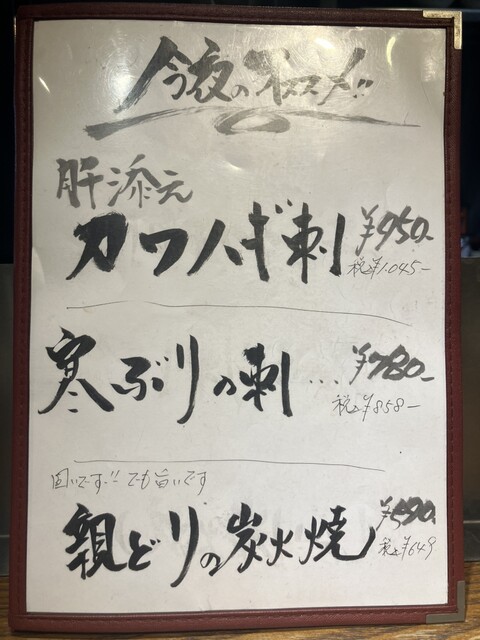 今夜のオススメ!!
肝添え
カワハギ刺 ¥950-
税込¥1,045-
寒ぶりの刺 … ¥780-
税込¥858-
固いです!! でも旨いです
親どりの炭火焼 ¥590-
税込¥649